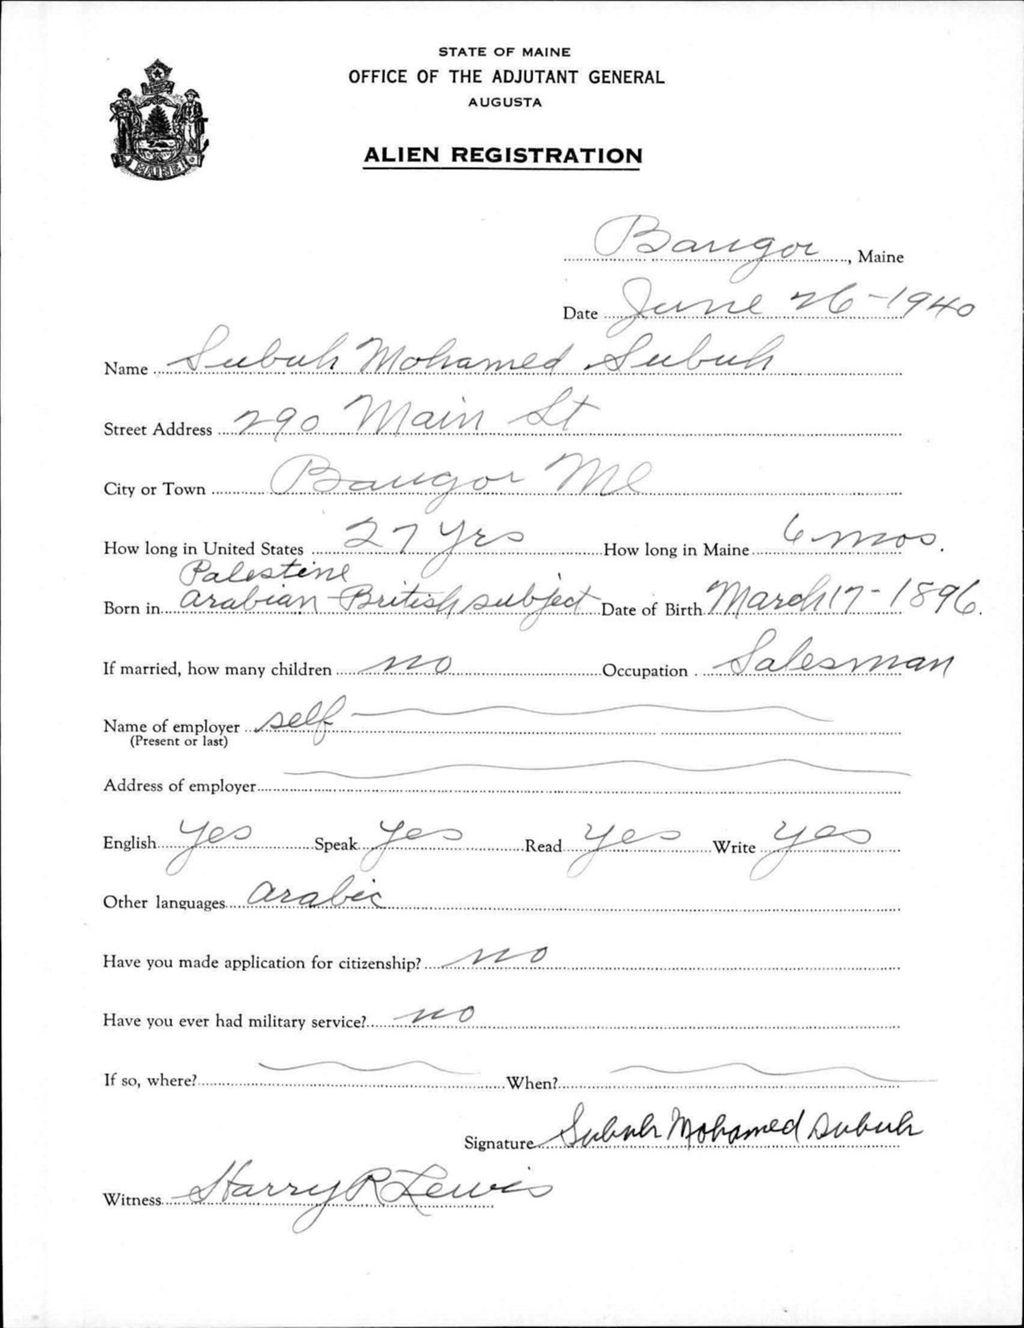 STATE OF MAINE
OFFICE OF THE ADJUTANT GENERAL
AUGUSTA
ALIEN REGISTRATION
MAINE
Bangor, Maine
Date June 26-1940
Name Subuh Mohamed Subuh
Street Address 290 Main St
City or Town Bangor Me
How long in United States 27 Yrs How long in Maine 6 mos.
Palestine
Born in Arabian - British subject Date of Birth March 17-1896.
If married, how many children no Occupation Salesman
Name of employer self
(Present or last)
Address of employer
English Yes Speak Yes Read Yes Write Yes
Other languages Arabic
Have you made application for citizenship? no
Have you ever had military service? no
If so, where? When?
Signature Subuh Mohamed Subuh
Witness Harry R Lewis